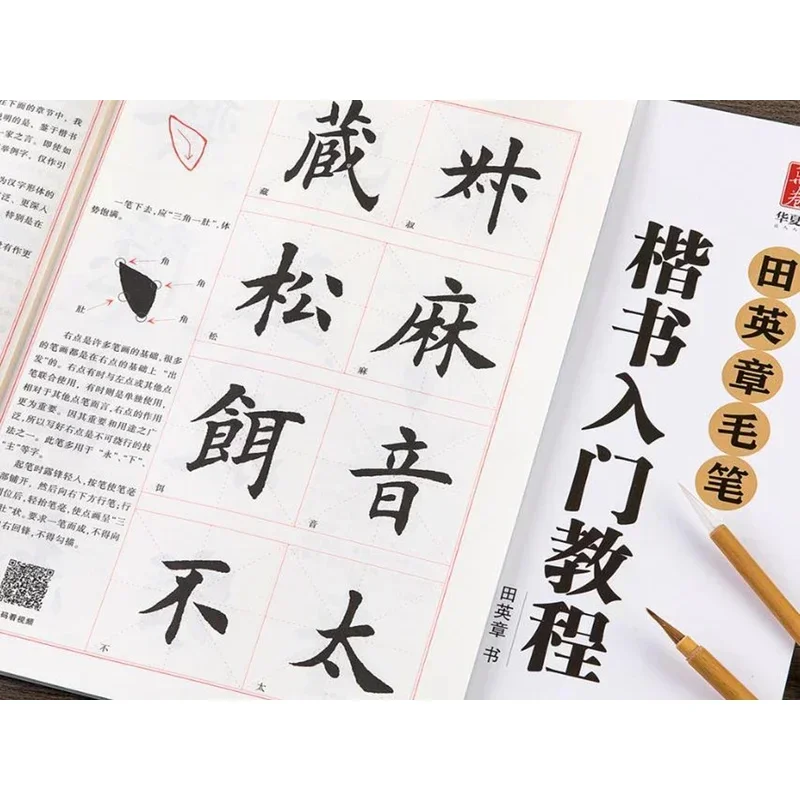 下面的章节中，我
明的是、鉴于楷书
一家之言。即使如
举例字，仅作引
为汉字形体的
泛、更深入
特别是在
有作更
一笔下去，应“三角一肚”，体
势饱满。
角
角
肚
角
右点是许多笔画的基础，很多
的笔画都是在右点的基础上“出
发”的。右点有时与左点或其他点
笔联合使用，有时则是单独使用，
相对于其他点笔而言，右点的作用
更为重要。因其重要和用途之广
泛，所以写好右点是不可绕行的技
法之一。此笔多用于“永”、“下”、
“主”等字。
起笔时露锋轻入，按笔使笔毫
部铺开，然后向右下方行笔；行
到位后，轻抬笔毫，使点画呈“三
肚”状。要求一笔而成，不得向
右回锋，不得勾描。
码看视频
藏
藏
叔
松
松
麻
麻
餌
饵
音
音
不
不
太
太
华夏
田英章毛笔
楷书入门教程
田英章 书